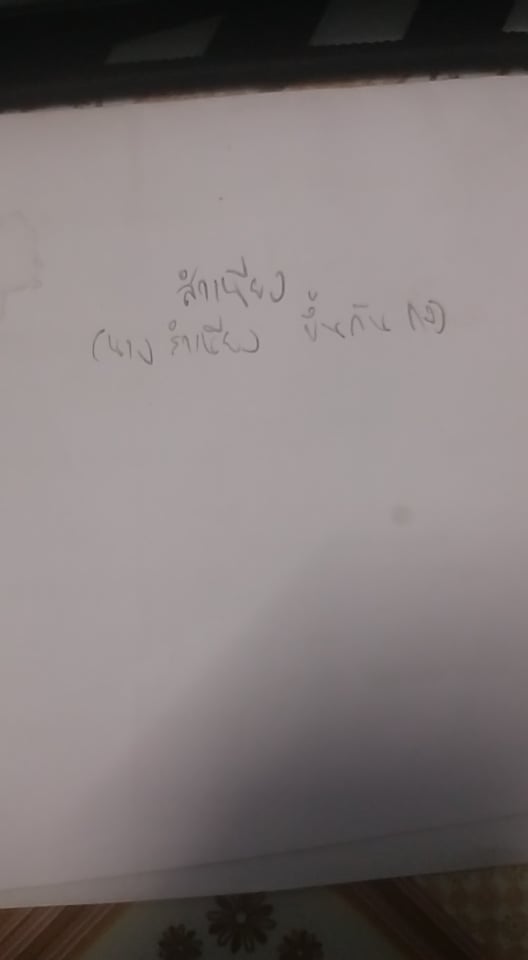 สำเนียง
(นาง สำเนียง ปั้นกัน